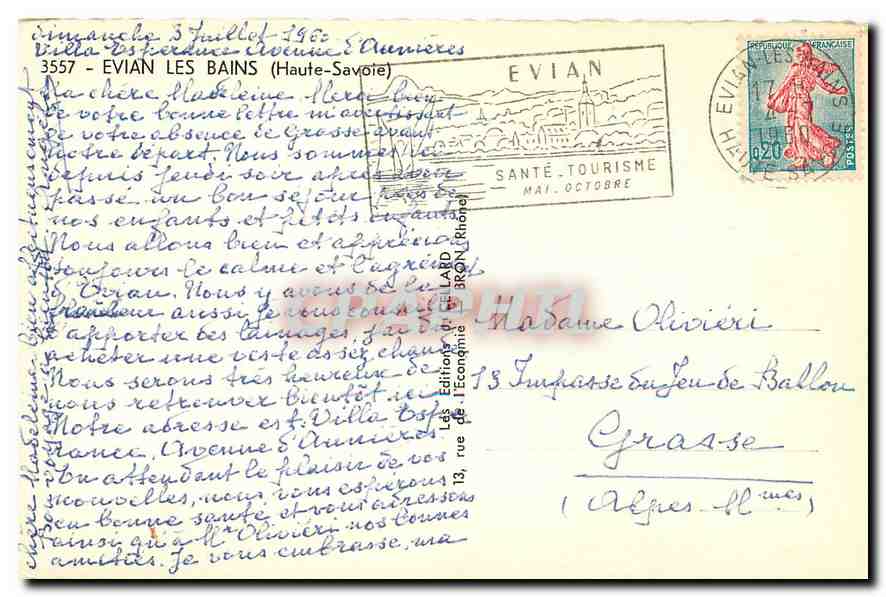 Dimanche 3 Juillet 1960
Villa Esperance Avenue d'Aunières
3557 - EVIAN LES BAINS (Haute-Savoie)
Ma chère Madeleine. Merci bien
de votre bonne lettre m'avertissant
de votre absence de Grasse avant
notre départ. Nous sommes ici
depuis jeudi soir après avoir
passé un bon séjour près de
nos enfants et petits enfants
Nous allons bien et apprécions
toujours le calme et l'agrément
d'Evian. Nous y avons de la
aussi je vous conseille
d'apporter des lainages, j'ai dû
acheter une veste assez chaude
Nous serons très heureux de
vous retrouver bientôt ici
Notre adresse est: Villa Espé
rance, Avenue d'Aunières
En attendant le plaisir de vos
nouvelles, nous vous espérons
en bonne santé et vous adressons
ainsi qu'à Mr Oliviéri nos bonnes
amitiés. Je vous embrasse, ma
chère Madeleine bien affectueusement
EVIAN
SANTÉ - TOURISME
MAI - OCTOBRE
EVIAN-LES-BAINS
17H
4 - 7
1960
HTE SAVOIE
REPUBLIQUE FRANÇAISE
0,20
POSTES
Les Editions J. CELLARD
13, rue de l'Economie BRON (Rhône)
Madame Oliviéri
13 Impasse du Jeu de Ballon
Grasse
(Alpes Mmes)
CPAPHIL